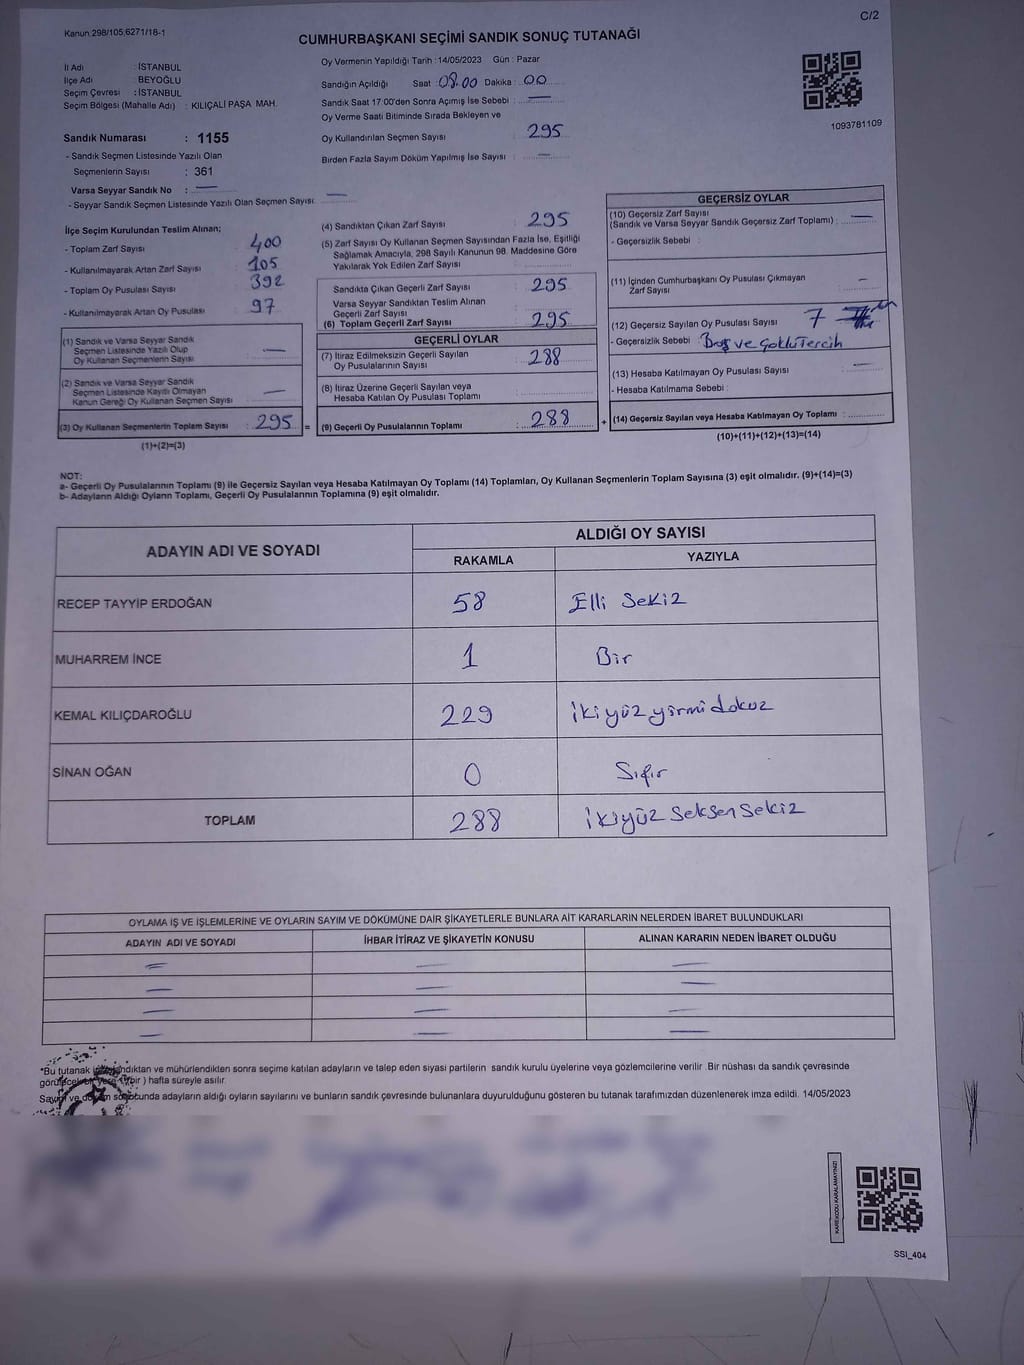 C/2
Kanun 298/105,6271/18-1
CUMHURBAŞKANI SEÇİMİ SANDIK SONUÇ TUTANAĞI
İl Adı : İSTANBUL
İlçe Adı : BEYOĞLU
Seçim Çevresi : İSTANBUL
Seçim Bölgesi (Mahalle Adı) : KILIÇALİ PAŞA MAH.
Sandık Numarası : 1155
- Sandık Seçmen Listesinde Yazılı Olan
Seçmenlerin Sayısı : 361
Varsa Seyyar Sandık No : —
- Seyyar Sandık Seçmen Listesinde Yazılı Olan Seçmen Sayısı: —
Oy Vermenin Yapıldığı Tarih : 14/05/2023 Gün : Pazar
Sandığın Açıldığı Saat : 08.00 Dakika : 00
Sandık Saat 17:00'den Sonra Açımış İse Sebebi : —
Oy Verme Saati Bitiminde Sırada Bekleyen ve
Oy Kullandırılan Seçmen Sayısı : 295
Birden Fazla Sayım Döküm Yapılmış İse Sayısı : —
1093781109
İlçe Seçim Kurulundan Teslim Alınan;
- Toplam Zarf Sayısı : 400
- Kullanılmayarak Artan Zarf Sayısı : 105
- Toplam Oy Pusulası Sayısı : 392
- Kullanılmayarak Artan Oy Pusulası : 97
(1) Sandık ve Varsa Seyyar Sandık
Seçmen Listesinde Yazılı Olup
Oy Kullanan Seçmenlerin Sayısı : —
(2) Sandık ve Varsa Seyyar Sandık
Seçmen Listesinde Kayıtlı Olmayan
Kanun Gereği Oy Kullanan Seçmen Sayısı : —
(3) Oy Kullanan Seçmenlerin Toplam Sayısı : 295 =
(1)+(2)=(3)
(4) Sandıktan Çıkan Zarf Sayısı : 295
(5) Zarf Sayısı Oy Kullanan Seçmen Sayısından Fazla İse, Eşitliği
Sağlamak Amacıyla, 298 Sayılı Kanunun 98. Maddesine Göre
Yakılarak Yok Edilen Zarf Sayısı :
Sandıkta Çıkan Geçerli Zarf Sayısı : 295
Varsa Seyyar Sandıktan Teslim Alınan
Geçerli Zarf Sayısı :
(6) Toplam Geçerli Zarf Sayısı : 295
GEÇERLİ OYLAR
(7) İtiraz Edilmeksizin Geçerli Sayılan
Oy Pusulalarının Sayısı : 288
(8) İtiraz Üzerine Geçerli Sayılan veya
Hesaba Katılan Oy Pusulası Toplamı :
(9) Geçerli Oy Pusulalarının Toplamı : 288 +
GEÇERSİZ OYLAR
(10) Geçersiz Zarf Sayısı
(Sandık ve Varsa Seyyar Sandık Geçersiz Zarf Toplamı) : —
- Geçersizlik Sebebi :
(11) İçinden Cumhurbaşkanı Oy Pusulası Çıkmayan
Zarf Sayısı : —
(12) Geçersiz Sayılan Oy Pusulası Sayısı : 7
- Geçersizlik Sebebi : Boş ve çoklu Tercih
(13) Hesaba Katılmayan Oy Pusulası Sayısı : —
- Hesaba Katılmama Sebebi :
(14) Geçersiz Sayılan veya Hesaba Katılmayan Oy Toplamı :
(10)+(11)+(12)+(13)=(14)
NOT:
a- Geçerli Oy Pusulalarının Toplamı (9) ile Geçersiz Sayılan veya Hesaba Katılmayan Oy Toplamı (14) Toplamları, Oy Kullanan Seçmenlerin Toplam Sayısına (3) eşit olmalıdır. (9)+(14)=(3)
b- Adayların Aldığı Oyların Toplamı, Geçerli Oy Pusulalarının Toplamına (9) eşit olmalıdır.
ADAYIN ADI VE SOYADI ALDIĞI OY SAYISI
RAKAMLA YAZIYLA
RECEP TAYYİP ERDOĞAN 58 Elli Sekiz
MUHARREM İNCE 1 Bir
KEMAL KILIÇDAROĞLU 229 ikiyüz yirmi dokuz
SİNAN OĞAN 0 Sıfır
TOPLAM 288 ikiyüz seksen sekiz
OYLAMA İŞ VE İŞLEMLERİNE VE OYLARIN SAYIM VE DÖKÜMÜNE DAİR ŞİKAYETLERLE BUNLARA AİT KARARLARIN NELERDEN İBARET BULUNDUKLARI
ADAYIN ADI VE SOYADI İHBAR İTİRAZ VE ŞİKAYETİN KONUSU ALINAN KARARIN NEDEN İBARET OLDUĞU
— — —
— — —
— — —
— — —
*Bu tutanak sonra seçime katılan adayların ve talep eden siyasi partilerin sandık kurulu üyelerine veya gözlemcilerine verilir .Bir nüshası da sandık çevresinde
hafta süreyle asılır.
Sayım ve adayların aldığı oyların sayılarını ve bunların sandık çevresinde bulunanlara duyurulduğunu gösteren bu tutanak tarafımızdan düzenlenerek imza edildi. 14/05/2023
KARE KODU KARALAMAYINIZ!
SSI_404